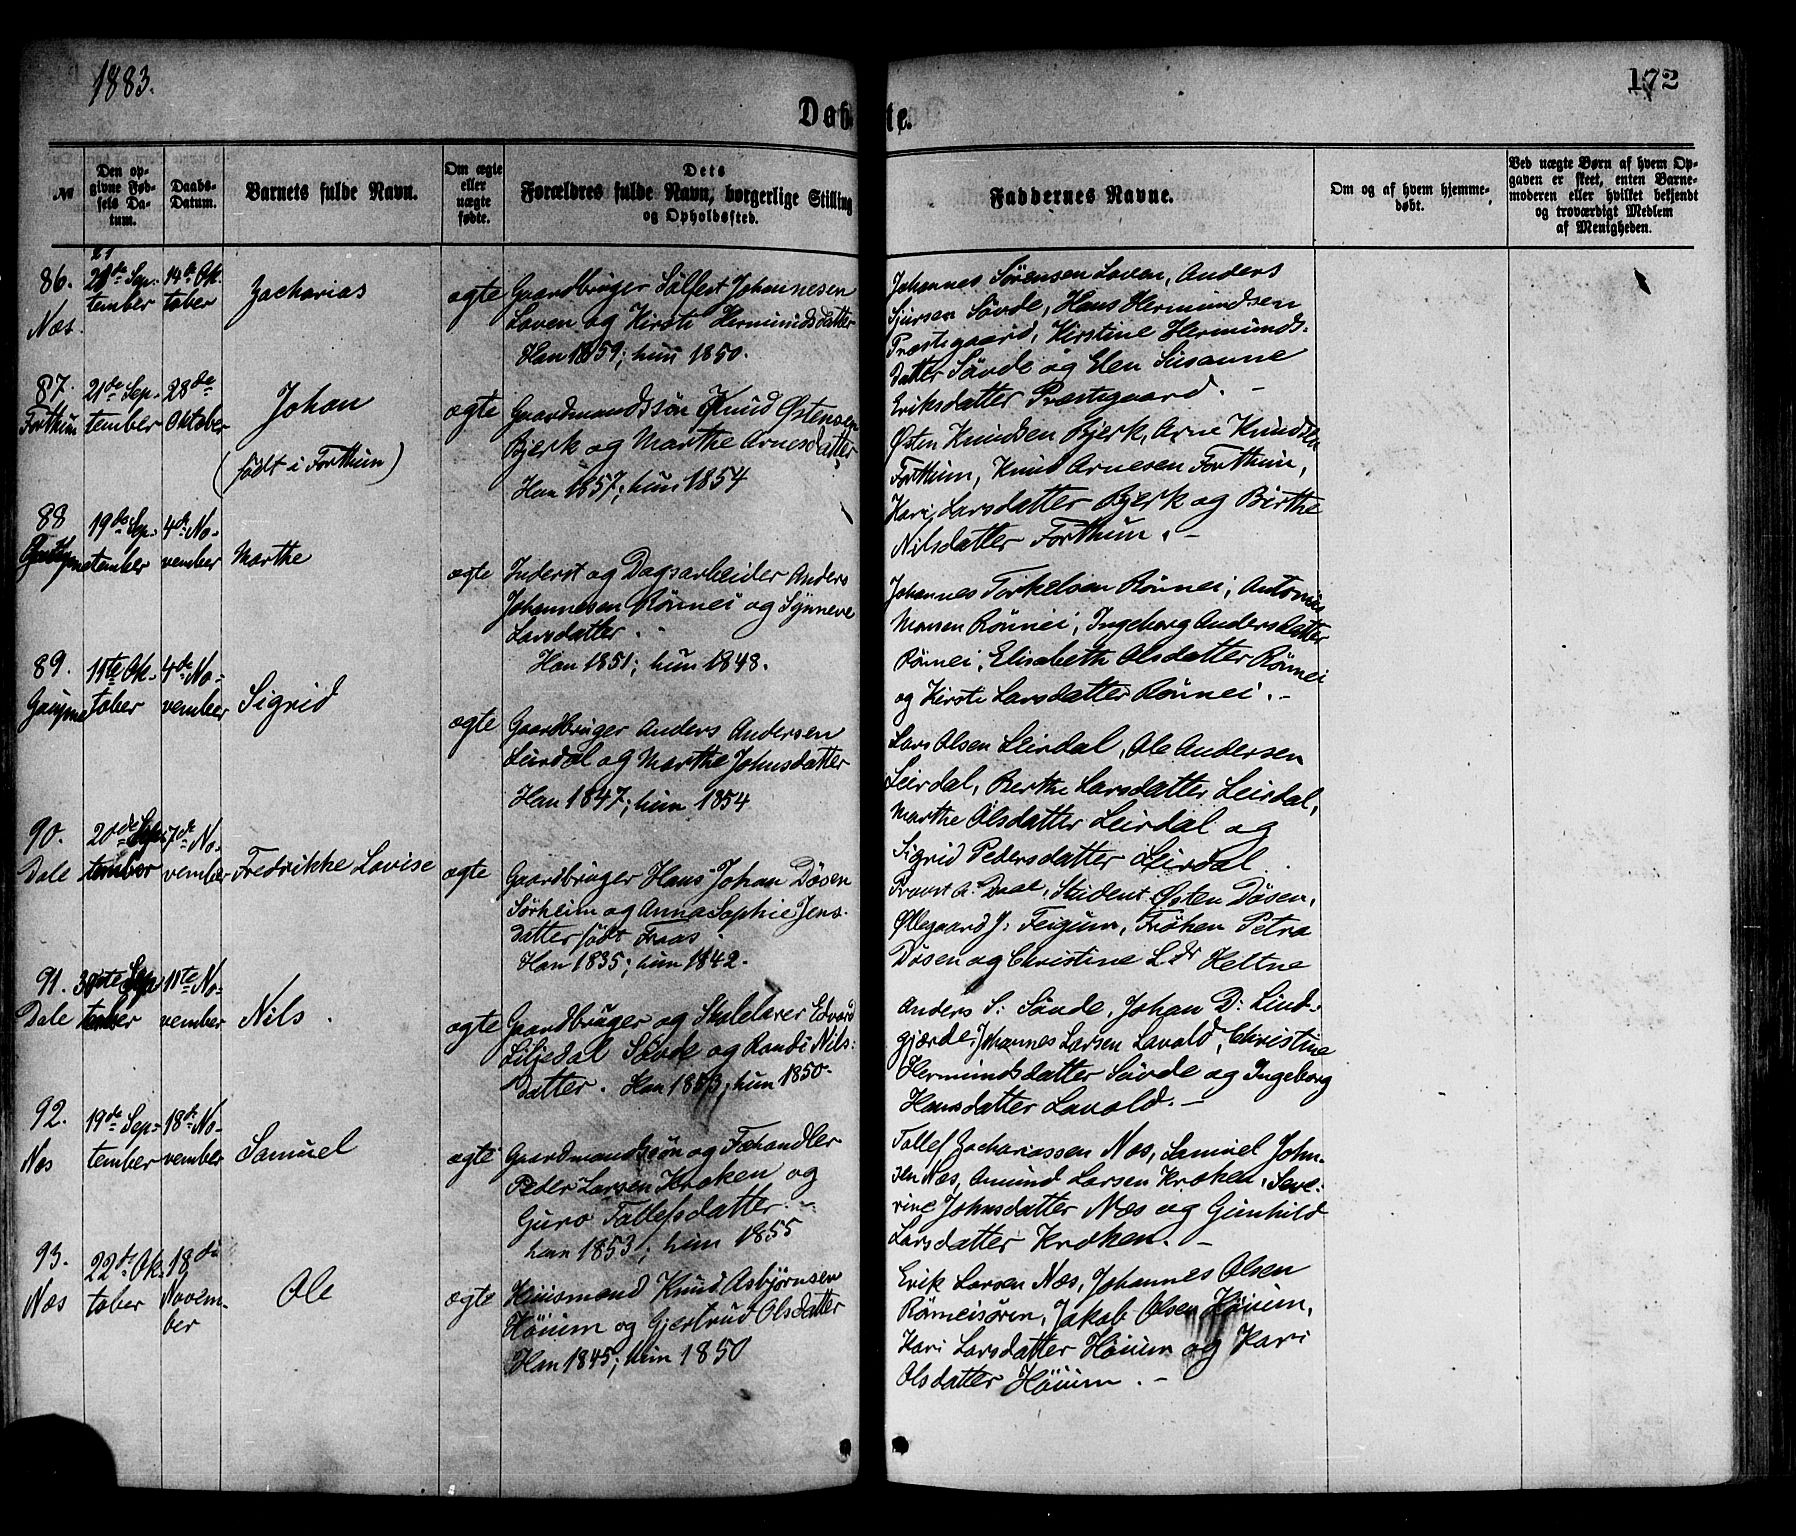 1883.
172
Døb
te.
№
Den op-
givne Fød-
sels Da-
tum.
Daabs-
Datum.
Barnets fulde Navn.
Om ægte
eller
uægte
fødte.
Dets
Forældres fulde Navn, borgerlige Stilling
og Opholdssted.
Faddernes Navne.
Om og af hvem hjemme-
døbt.
Ved uægte Børn af hvem Op-
gaven er skeet, enten Barne-
moderen eller hvilket bekjendt
og troværdigt Medlem
af Menigheden.
86.
Næs.
21
de Sep-
tember
14de Ok-
tober
Zacharias
ægte
Gaardbruger Sølfest Johannesen
Loven og Kirsti Hermundsdatter
Han 1859; hun 1850.
Johannes Sørensen Loven, Anders
Sjursen Søvde, Hans Hermundsen
Præstegaard, Kirstine Hermunds-
datter Søvde og Elen Susanne
Eriksdatter Præstegaard. -
87.
Forthun
21de Sep-
tember
28de
Oktober
Johan
(født i Forthun)
ægte
Gaardmandssøn Knud Østensen
Bjerk og Marthe Arnesdatter
Han 1857; hun 1854
Østen Knudsen Bjerk, Arne Knudsen
Forthun, Knud Arnesen Forthun,
Kari Larsdatter Bjerk og Birthe
Nilsdatter Forthun. -
88
19de Sep-
tember
4de No-
vember
Marthe
ægte
Inderst og Dagsarbeider Anders
Johannesen Rønnei og Synneve
Larsdatter.
Han 1851; hun 1848.
Johannes Torkelsen Rønnei, Antonius
Monsen Rønnei, Ingeborg Andersdatter
Rønnei, Elisabeth Olsdatter Rønnei
og Kirsti Larsdatter Rønnei. -
89.
Gaupne
Ok-
tober
4de No-
vember
Sigrid
ægte
Gaardbruger Anders Andersen
Leirdal og Marthe Johnsdatter
Han 1847; hun 1854
Lars Olsen Leirdal, Ole Andersen
Leirdal, Berthe Larsdatter Leirdal,
Marthe Olsdatter Leirdal og
Sigrid Pedersdatter Leirdal.
90.
Dale
20de Sep-
tember
7de No-
vember
Fredrikke Lovise
ægte
Gaardbruger Hans Johan Døsen
Sørheim og Anna Sophie Jens-
datter født Fraas.
Han 1835; hun 1842.
Provst A. Dral, Student Østen Døsen,
Øllegaard J: Feigum, Frøken Petra
Døsen og Christine L.dr Heltne
91.
Dale
Sep-
tember
11te No-
vember
Nils
ægte
Gaardbruger og Skolelærer Edvard
Liljedal Søvde og Randi Nils-
datter. Han 1853; hun 1850.
Anders S: Søvde, Johan D: Lind-
gjærde, Johannes Larsen Lavold, Christine
Hermundsdatter Søvde og Ingeborg
Hansdatter Lavold. -
92.
Næs
19de Sep-
tember
18de No-
vember
Samuel
ægte
Gaardmandssøn og Fæhandler
Peder Larsen Kroken og
Guro Tollefsdatter. -
han 1853; hun 1855
Tollef Zachariassen Næs, Samuel John-
sen Næs, Amund Larsen Kroken, Seve-
rine Johnsdatter Næs og Gunhild
Larsdatter Kroken. -
93.
Næs
22de Ok-
tober
18de
Novem-
ber
Ole
ægte
Huusmand Knud Asbjørnsen
Høium og Gjertrud Olsdatter
Han 1845; hun 1850
Erik Larsen Næs, Johannes Olsen
Rønneisøren, Jakob Olsen Høium,
Kari Larsdatter Høium og Kari
Olsdatter Høium. -